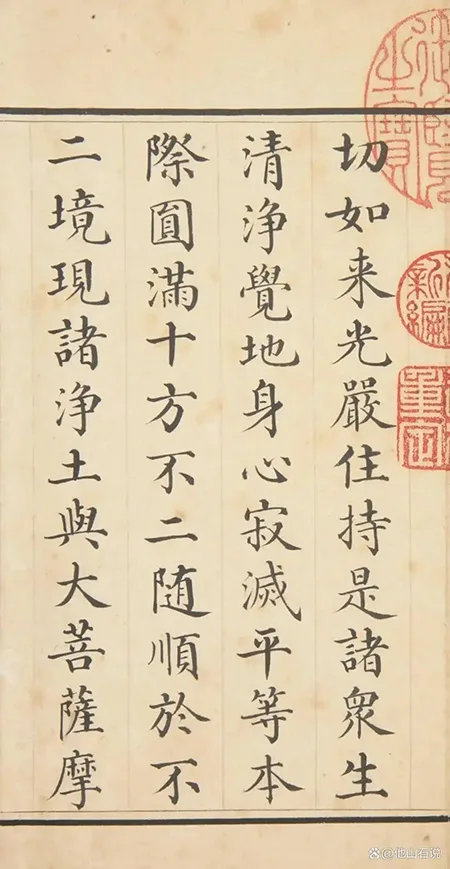 切如来光嚴住持是諸衆生
清浄覺地身心寂滅平等本
際圓滿十方不二随順於不
二境現諸浄土與大菩薩摩
@他山石说